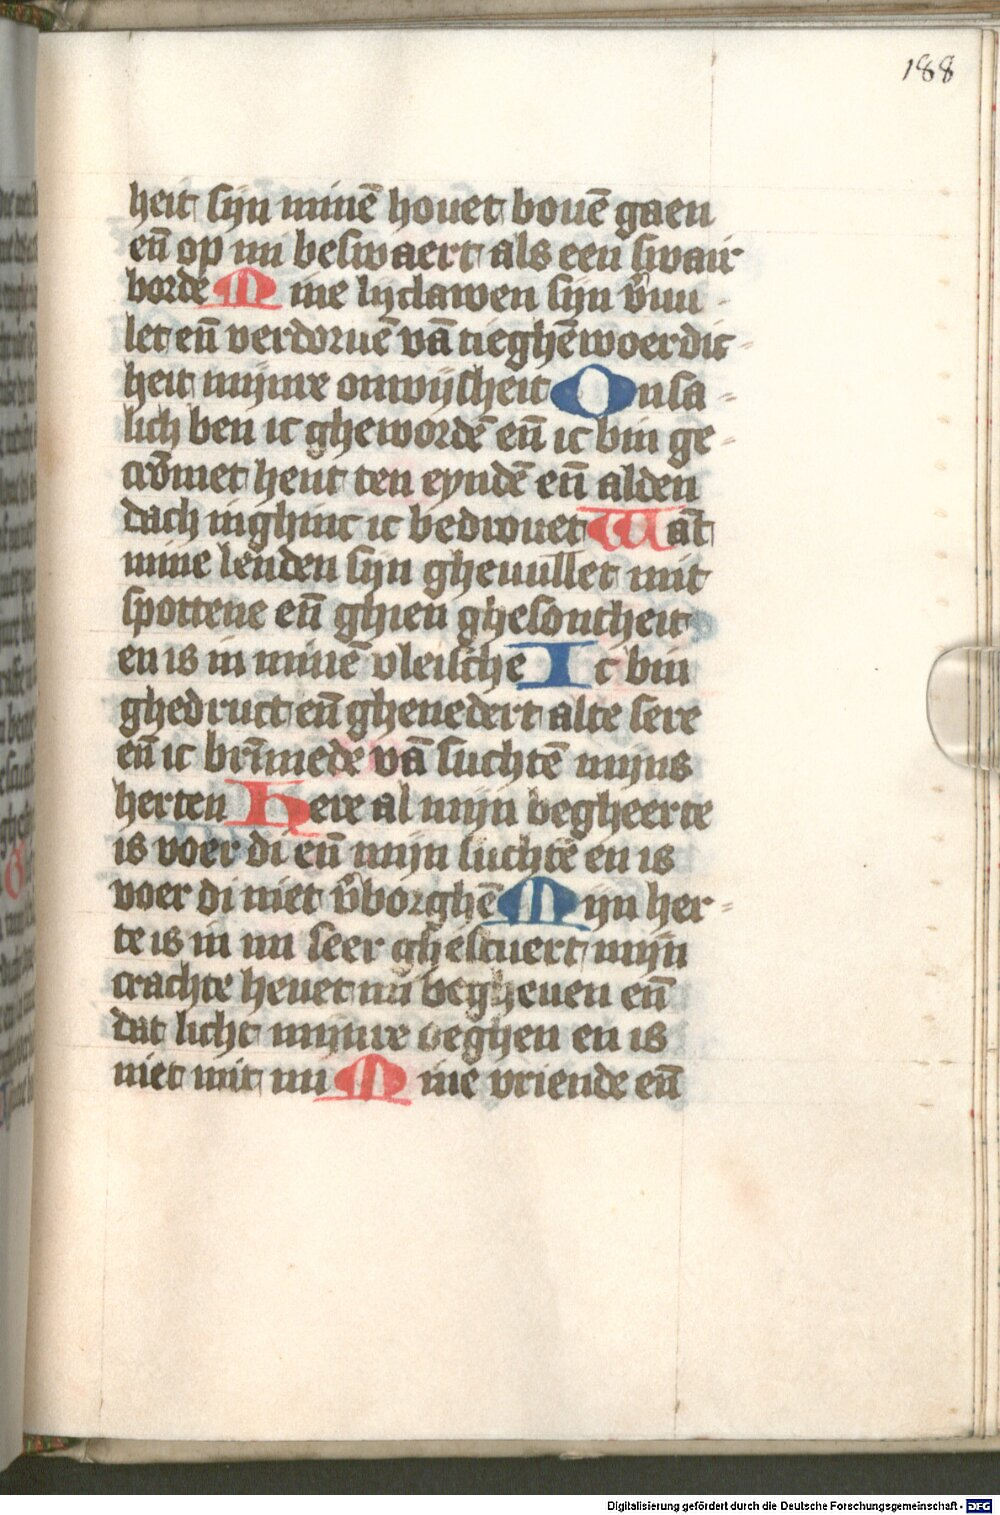 188
heit sijn minē houet bouē gaen
eñ op mi beswaert als een swair
borde Mine lijclawen sijn v̄vui-
let eñ verdoruē vā tieghēwoerdic-
heit mijnre onwijsheit Onsa-
lich ben ic ghewordē eñ ic bin ge-
crōmet hent ten eyndē eñ alden
dach inghinc ic bedrouet Wāt
mine lenden sijn gheuullet mit
spottene eñ ghien ghesontheit
en is in minē vleische Ic bin
ghedruct eñ ghenedert alte sere
eñ ic brīmede vā suchtē mijns
herten Here al mijn begheerte
is voer di eñ mijn suchtē en is
voer di niet v̄borghē Mijn her-
te is in mi seer ghescuert mijn
crachte heuet mi begheuen eñ
dat licht mijnre oeghen en is
niet mit mi Mine vriende eñ
Digitalisierung gefördert durch die Deutsche Forschungsgemeinschaft - DFG